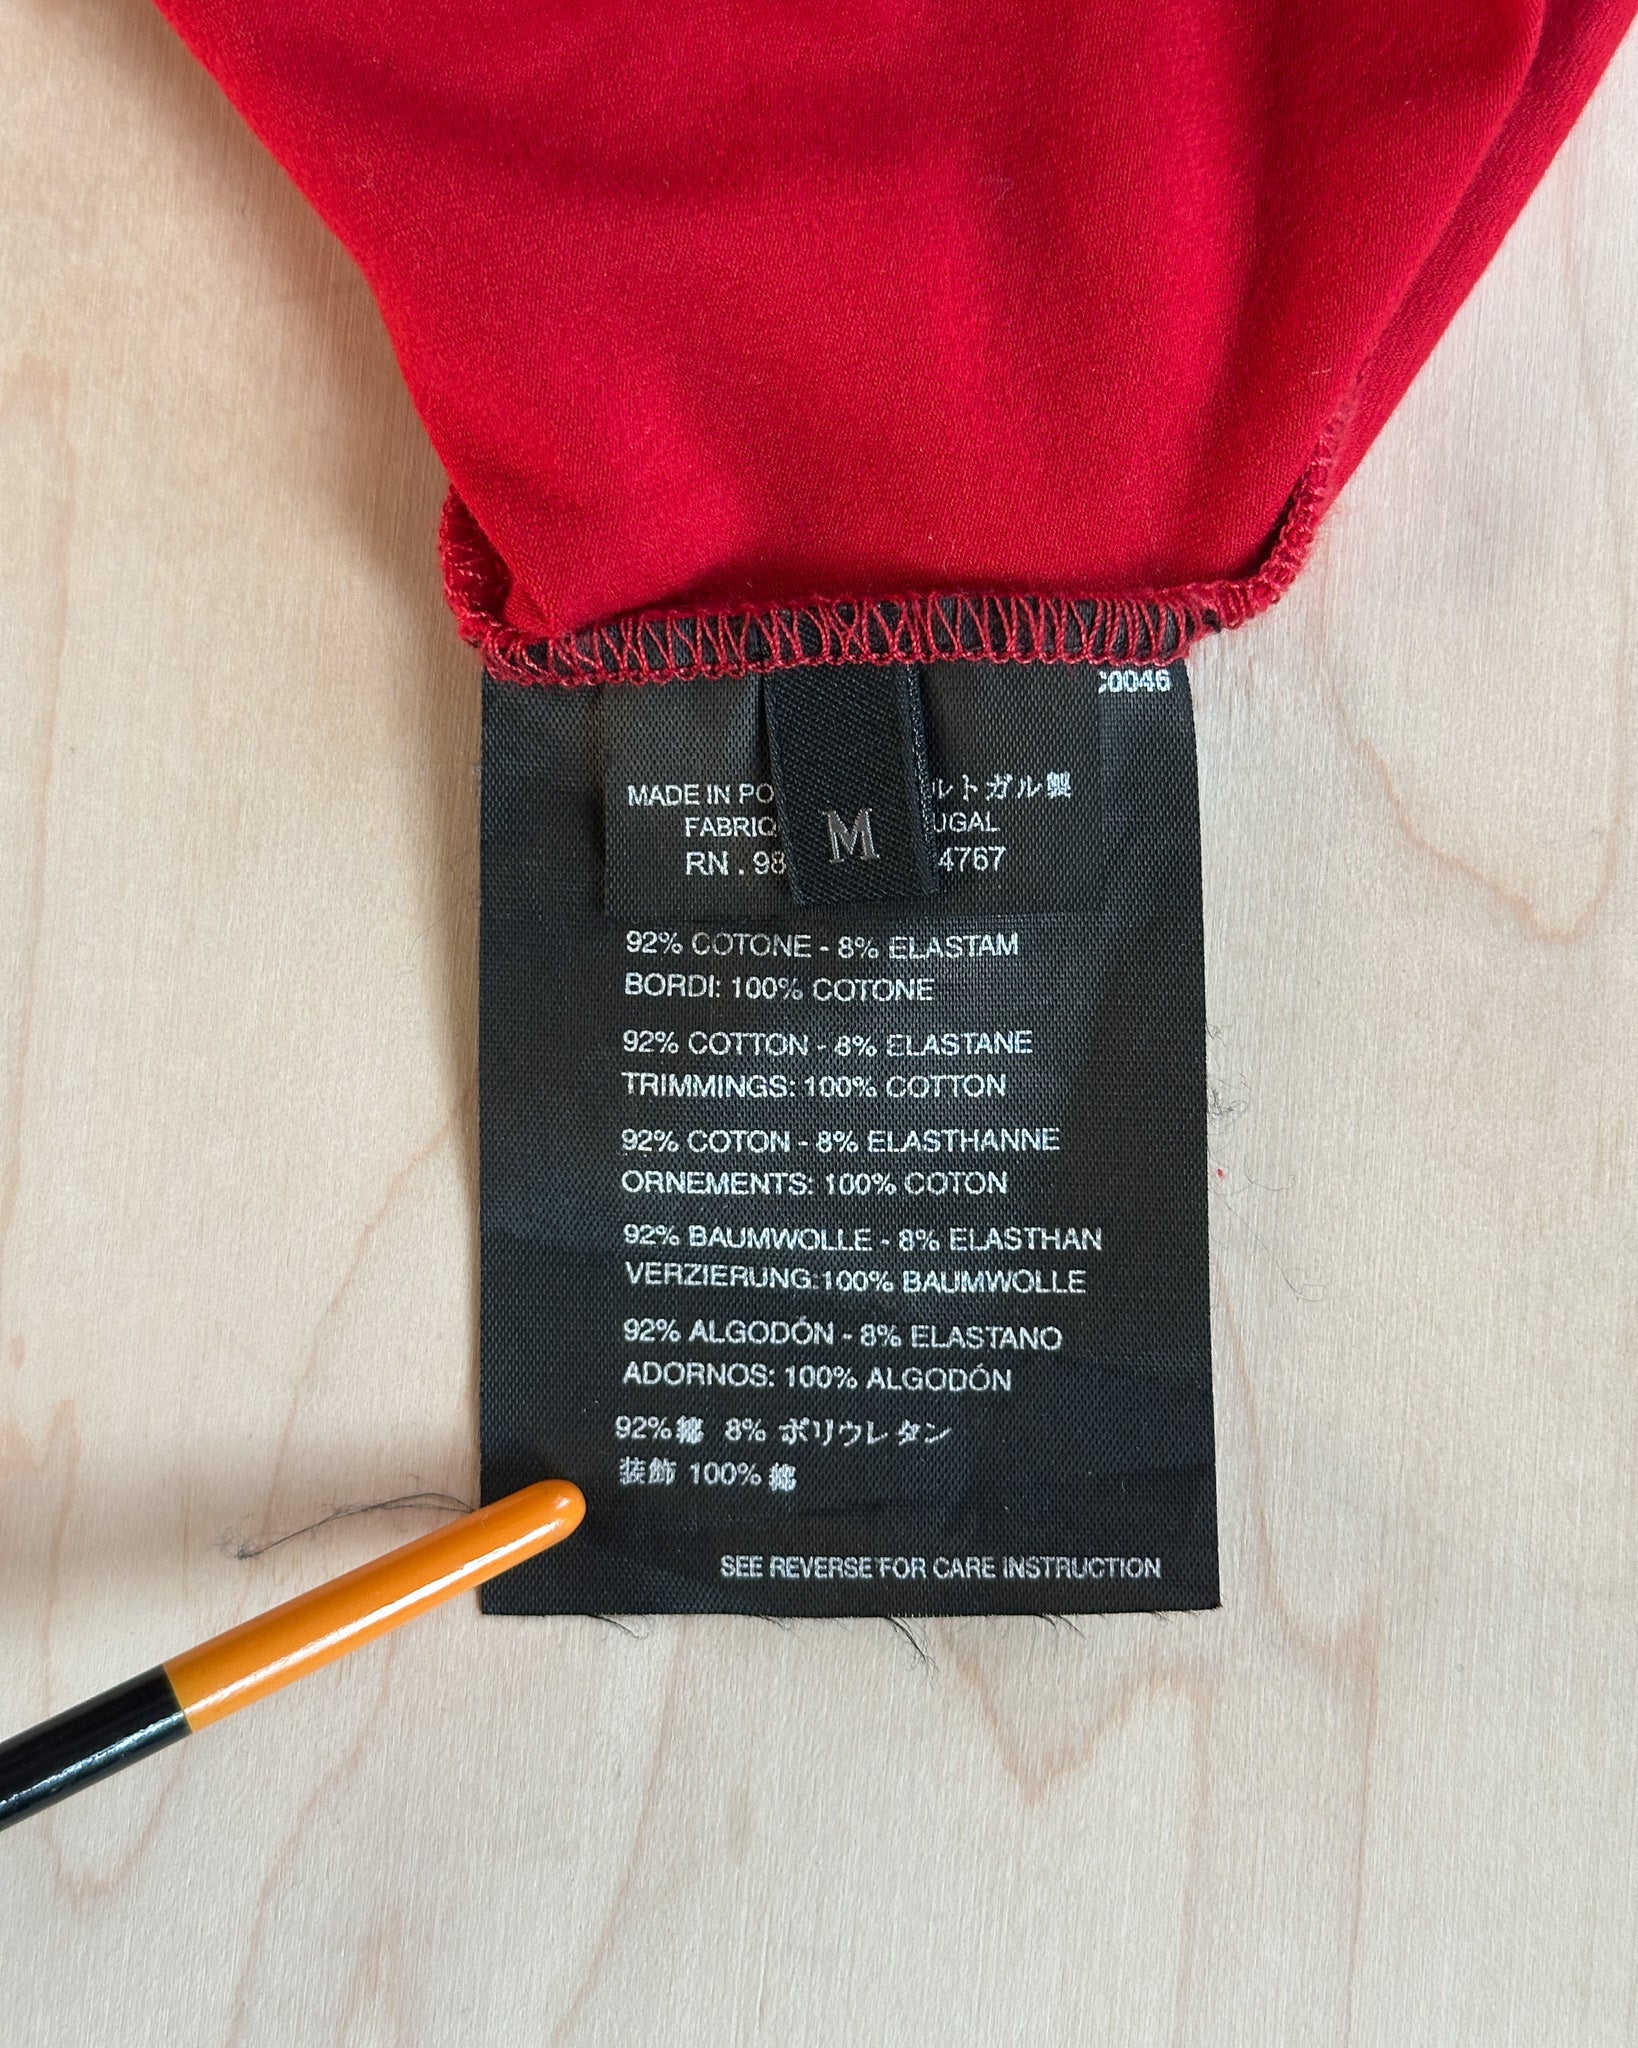 0046
MADE IN PO ルトガル製
FABRIQ UGAL
RN . 98 4767
M
92% COTONE - 8% ELASTAM
BORDI: 100% COTONE
92% COTTON - 8% ELASTANE
TRIMMINGS: 100% COTTON
92% COTON - 8% ELASTHANNE
ORNEMENTS: 100% COTON
92% BAUMWOLLE - 8% ELASTHAN
VERZIERUNG:100% BAUMWOLLE
92% ALGODÓN - 8% ELASTANO
ADORNOS: 100% ALGODÓN
92% 綿 8% ポリウレタン
装飾 100% 綿
SEE REVERSE FOR CARE INSTRUCTION